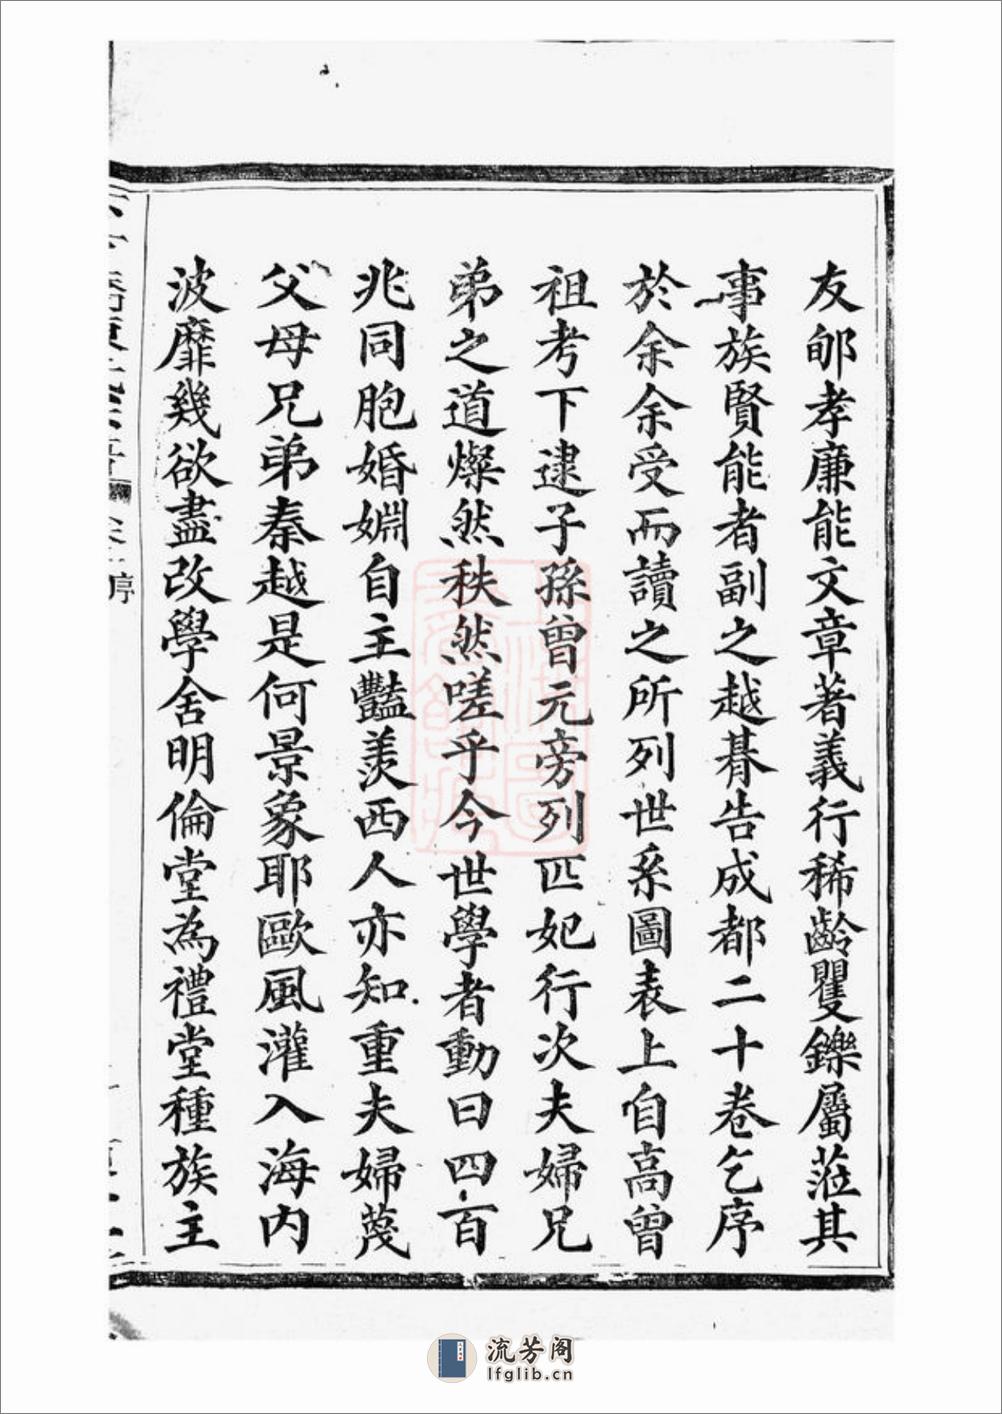 友邮孝廉能文章著義行稀齡矍鑠屬蒞其
事族賢能者副之越朞告成都二十卷乞序
於余余受而讀之所列世系圖表上自高曾
祖考下逮子孫曾元旁列匹妃行次夫婦兄
弟之道燦然秩然嗟乎今世學者動曰四百
兆同胞婚婣自主豔羨西人亦知重夫婦蔑
父母兄弟秦越是何景象耶歐風灌入海内
波靡幾欲盡改學舍明倫堂為禮堂種族主
序
流芳阁
lfglib.cn